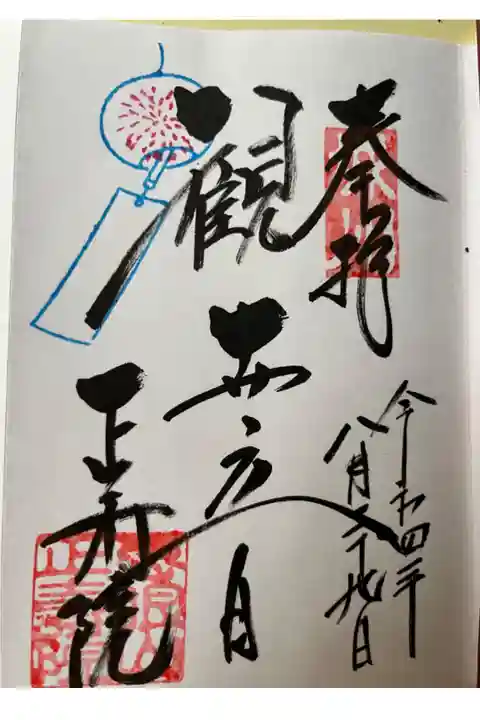 奉拝
令和四年
八月二十九日
観世音
正寿院